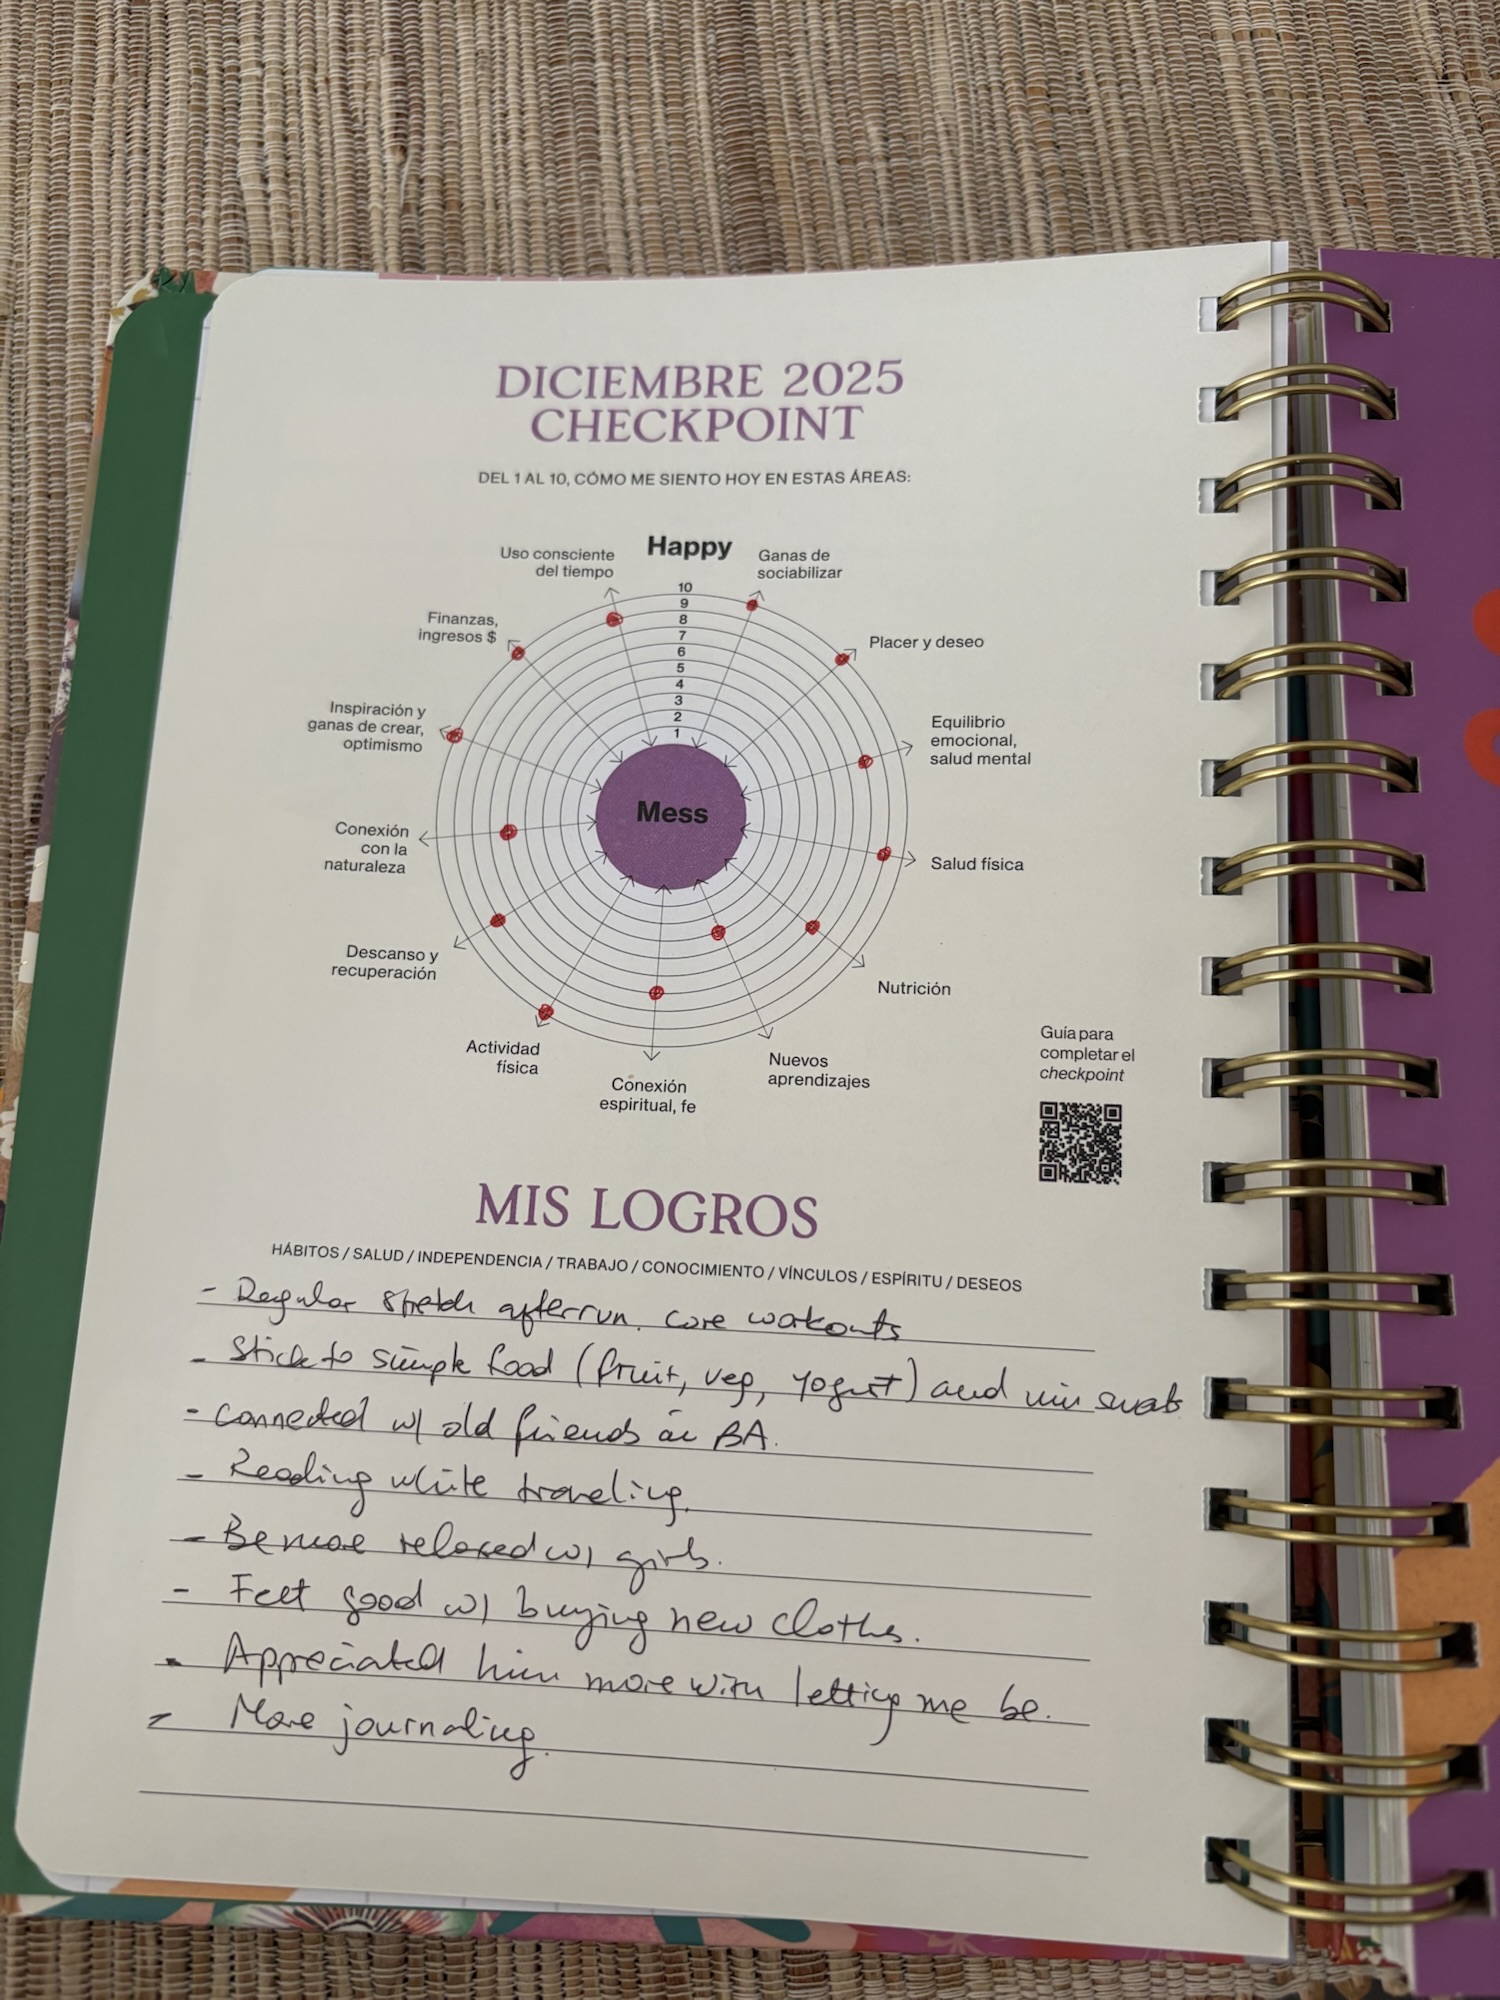 DICIEMBRE 2025
CHECKPOINT
DEL 1 AL 10, CÓMO ME SIENTO HOY EN ESTAS ÁREAS:
Happy
Uso consciente
del tiempo
Ganas de
sociabilizar
Finanzas,
ingresos $
Placer y deseo
10
9
8
7
6
5
4
3
2
1
Inspiración y
ganas de crear,
optimismo
Equilibrio
emocional,
salud mental
Mess
Conexión
con la
naturaleza
Salud física
Descanso y
recuperación
Nutrición
Actividad
física
Conexión
espiritual, fe
Nuevos
aprendizajes
Guía para
completar el
checkpoint
MIS LOGROS
HÁBITOS / SALUD / INDEPENDENCIA / TRABAJO / CONOCIMIENTO / VÍNCULOS / ESPÍRITU / DESEOS
- Regular stretch after run. core workouts
- Stick to simple food (fruit, veg, yogurt) and min sweets
- Connected w/ old friends in BA.
- Reading while traveling.
- Be more relaxed w/ girls.
- Felt good w/ buying new clothes.
- Appreciated him more with letting me be.
- More journaling.